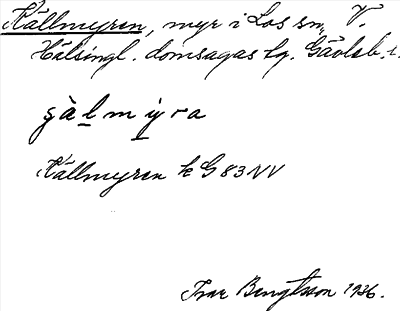 Källmyren, myr i Los sn, V.
Hälsingl. domsagas tg. Gävleb. l.
ɕàl̲m y̲ra
Källmyren k G 83 NV
Ivar Bengtsson 1936.